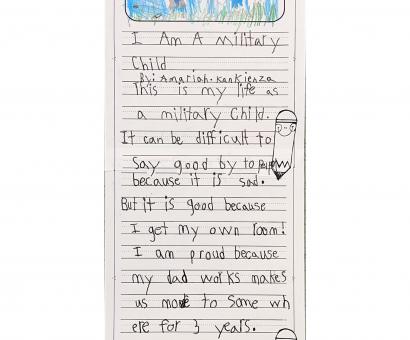 I Am A military
Child
By: Amariah. Kankienza
This is my life as
a military Child.
It can be difficult to
say good by to
because it is sad.
But it is good because
I get my own room!
I am proud because
my dad works makes
us move to some wh
ere for 3 years.